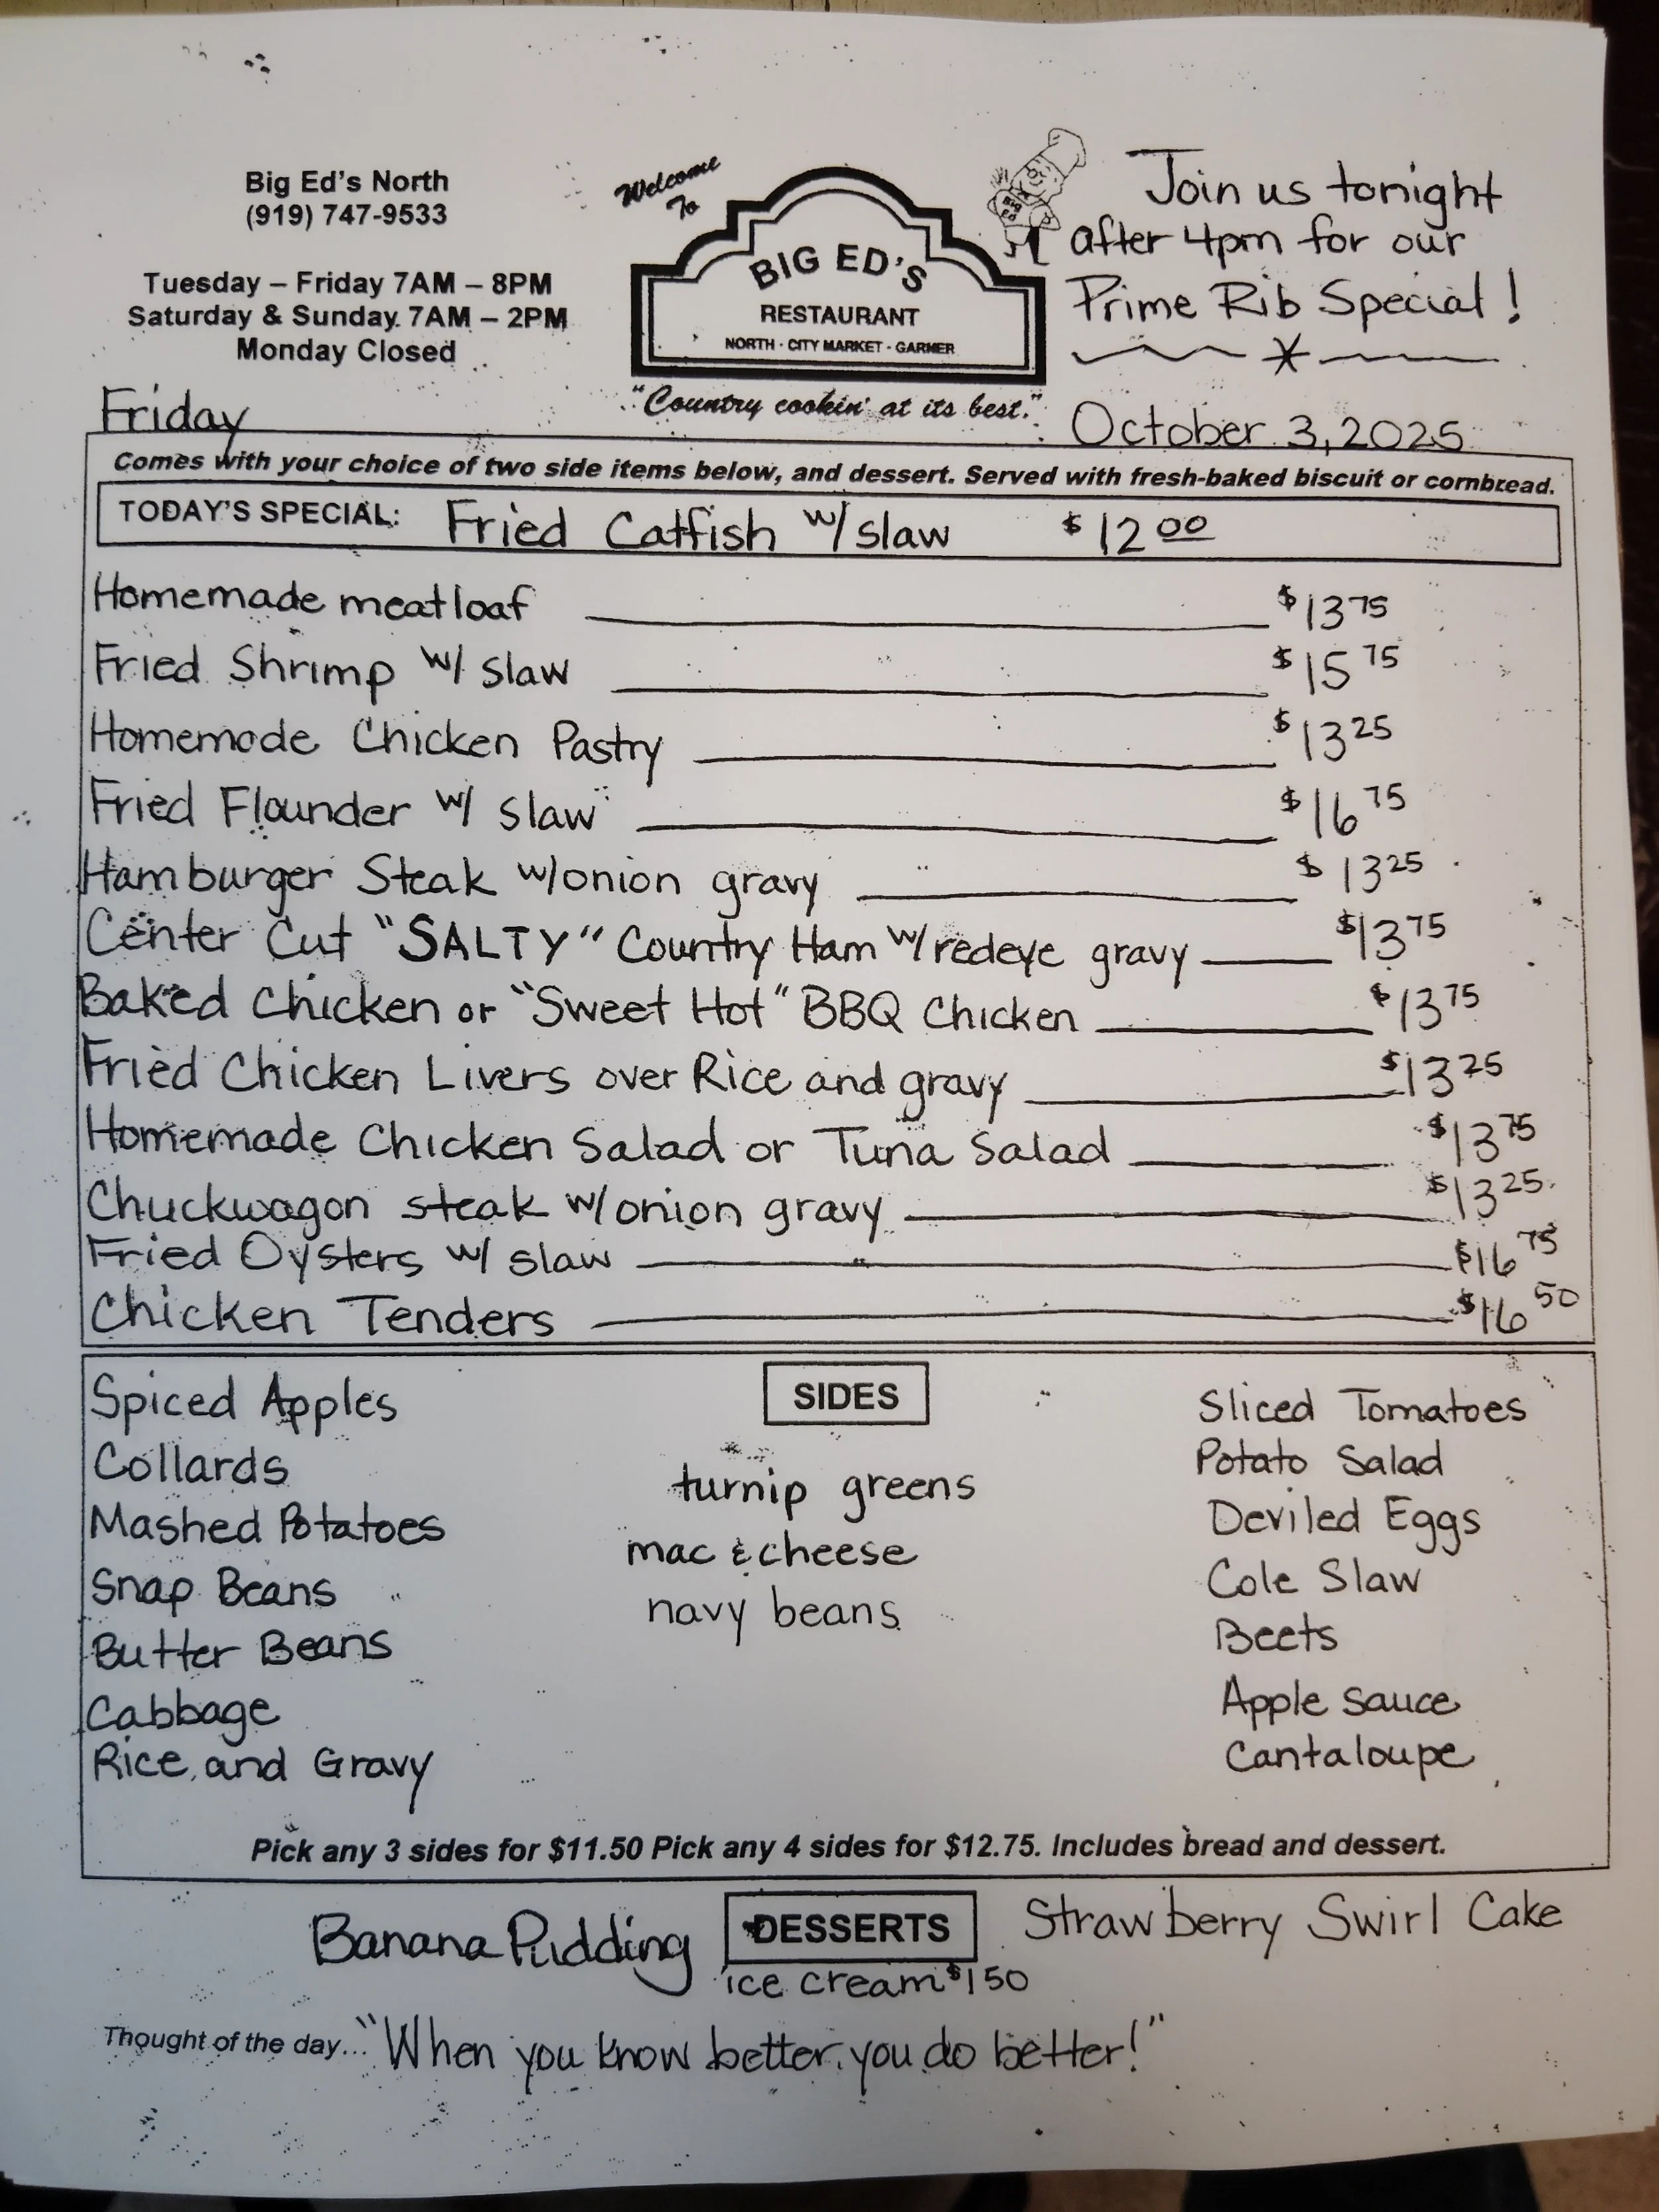 Big Ed's North
(919) 747-9533
Tuesday – Friday 7AM – 8PM
Saturday & Sunday 7AM – 2PM
Monday Closed
Welcome
To
BIG ED'S
RESTAURANT
NORTH · CITY MARKET · GARNER
"Country cookin' at its best."
Big
Ed
Join us tonight
after 4pm for our
Prime Rib Special!
Friday
October 3, 2025
Comes with your choice of two side items below, and dessert. Served with fresh-baked biscuit or cornbread.
TODAY'S SPECIAL: Fried Catfish w/ slaw $12 00
Homemade meatloaf $13 75
Fried Shrimp w/ slaw $15 75
Homemade Chicken Pastry $13 25
Fried Flounder w/ slaw $16 75
Hamburger Steak w/onion gravy $13 25
Center Cut "SALTY" Country Ham w/ redeye gravy $13 75
Baked Chicken or "Sweet Hot" BBQ Chicken $13 75
Fried Chicken Livers over Rice and gravy $13 25
Homemade Chicken Salad or Tuna Salad $13 75
Chuckwagon steak w/onion gravy $13 25
Fried Oysters w/ slaw $16 75
Chicken Tenders $16 50
SIDES
Spiced Apples
Collards
Mashed Potatoes
Snap Beans
Butter Beans
Cabbage
Rice and Gravy
turnip greens
mac & cheese
navy beans
Sliced Tomatoes
Potato Salad
Deviled Eggs
Cole Slaw
Beets
Apple Sauce
Cantaloupe
Pick any 3 sides for $11.50 Pick any 4 sides for $12.75. Includes bread and dessert.
DESSERTS
Banana Pudding
ice cream $1 50
Strawberry Swirl Cake
Thought of the day... "When you know better, you do better!"